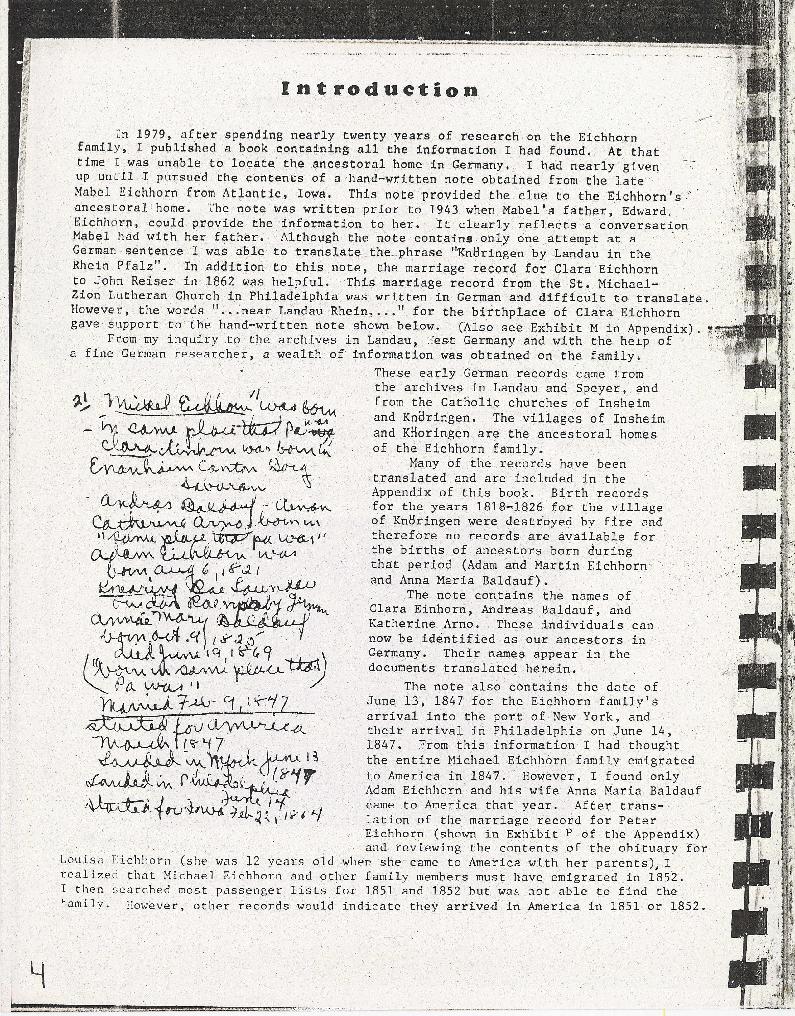 Introduction
In 1979, after spending nearly twenty years of research on the Eichhorn
family, I published a book containing all the information I had found. At that
time I was unable to locate the ancestoral home in Germany. I had nearly given
up until I pursued the contents of a hand-written note obtained from the late
Mabel Eichhorn from Atlantic, Iowa. This note provided the clue to the Eichhorn's
ancestoral home. The note was written prior to 1943 when Mabel's father, Edward
Eichhorn, could provide the information to her. It clearly reflects a conversation
Mabel had with her father. Although the note contains only one attempt at a
German sentence I was able to translate the phrase "Knöringen by Landau in the
Rhein Pfalz". In addition to this note, the marriage record for Clara Eichhorn
to John Reiser in 1862 was helpful. This marriage record from the St. Michael-
Zion Lutheran Church in Philadelphia was written in German and difficult to translate.
However, the words "...near Landau Rhein,..." for the birthplace of Clara Eichhorn
gave support to the hand-written note shown below. (Also see Exhibit M in Appendix).
From my inquiry to the archives in Landau, West Germany and with the help of
a fine German researcher, a wealth of information was obtained on the family.
These early German records came from
the archives in Landau and Speyer, and
from the Catholic churches of Insheim
and Knöringen. The villages of Insheim
and Knöringen are the ancestoral homes
of the Eichhorn family.
Many of the records have been
translated and are included in the
Appendix of this book. Birth records
for the years 1818-1826 for the village
of Knöringen were destroyed by fire and
therefore no records are available for
the births of ancestors born during
that period (Adam and Martin Eichhorn
and Anna Maria Baldauf).
The note contains the names of
Clara Einhorn, Andreas Baldauf, and
Katherine Arno. These individuals can
now be identified as our ancestors in
Germany. Their names appear in the
documents translated herein.
The note also contains the date of
June 13, 1847 for the Eichhorn family's
arrival into the port of New York, and
their arrival in Philadelphia on June 14,
1847. From this information I had thought
the entire Michael Eichhorn family emigrated
to America in 1847. However, I found only
Adam Eichhorn and his wife Anna Maria Baldauf
came to America that year. After trans-
lation of the marriage record for Peter
Eichhorn (shown in Exhibit P of the Appendix)
and reviewing the contents of the obituary for
Louisa Eichhorn (she was 12 years old when she came to America with her parents), I
realized that Michael Eichhorn and other family members must have emigrated in 1852.
I then searched most passenger lists for 1851 and 1852 but was not able to find the
family. However, other records would indicate they arrived in America in 1851 or 1852.
21 Mickel Eichhorn" was born
- in same place that Pa was
Clara Einhorn was born in
Canton
Andras Baldauf -
Catherene Arno, born in
"same place that pa was"
Adam Eichhorn was
born Aug 6, 1821
Knearing
Annae Mary Baldauf
born oct. 9, 1825
died June 19, 1869
("born in same place that
Pa was")
Married Feb 9, 1847
started for America
March 1847
Landed in NYork June 13
1847
Landed in Philadelphia
June 14
Started for Iowa Feb 22, 1864
4